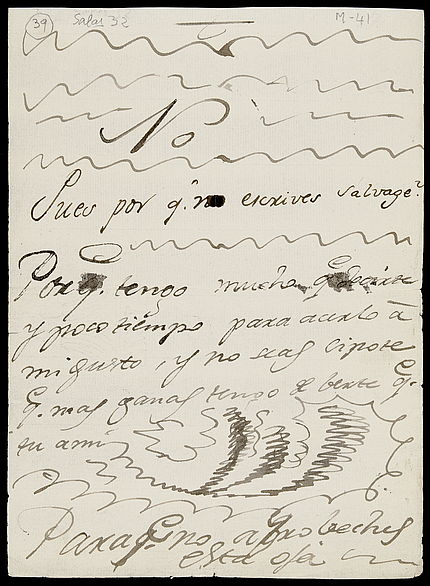 39 Salas 32 M-41
No
Pues por q.ᵉ no escrives salvage?
Porq.ᵉ tengo mucho q.ᵉ decirte
y poco tiempo para acerlo á
mi gusto, y no seas cipote
q.ᵉ mas ganas tengo de berte q.ᵉ
tu a mi
Para q.ᵉ no aprobeches
esta oja